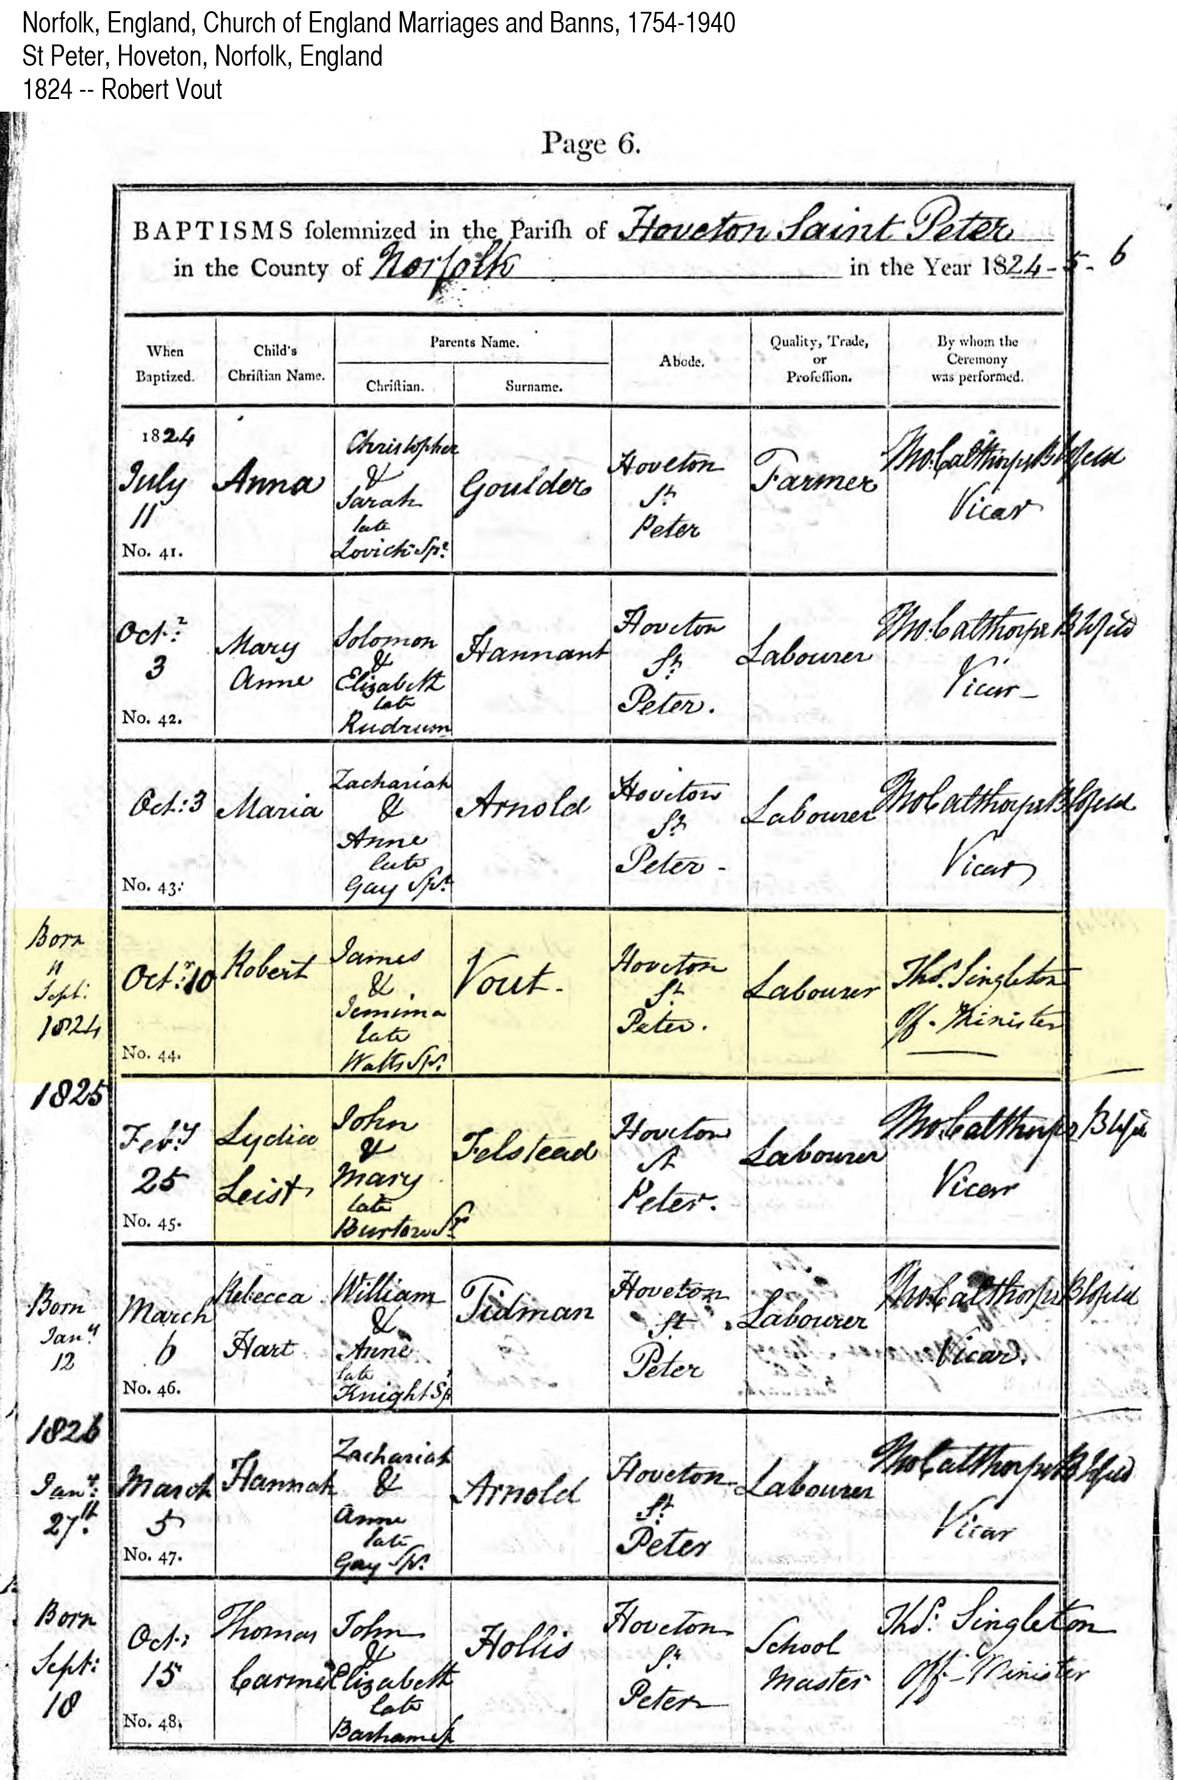 Norfolk, England, Church of England Marriages and Banns, 1754-1940
St Peter, Hoveton, Norfolk, England
1824 -- Robert Vout
Page 6.
BAPTISMS ſolemnized in the Pariſh of Hoveton Saint Peter
in the County of Norfolk in the Year 1824-5-6
When Baptized.
Child's Chriſtian Name.
Parents Name.
Chriſtian.
Surname.
Abode.
Quality, Trade, or Profeſſion.
By whom the Ceremony was performed.
1824
July 11
No. 41.
Anna
Christopher
&
Sarah
late
Lovick Spr.
Goulder
Hoveton
St.
Peter
Farmer
Tho. Calthorpe Blofeld
Vicar
Octr.
3
No. 42.
Mary
Anne
Solomon
&
Elizabeth
late
Rudrum
Hannant
Hoveton
St.
Peter.
Labourer
Tho. Calthorpe Blofeld
Vicar
Oct: 3
No. 43.
Maria
Zachariah
&
Anne
late
Gay Spr.
Arnold
Hoveton
St.
Peter
Labourer
Tho Calthorpe Blofeld
Vicar
Born
11
Sept:
1824
Octr. 10
No. 44.
Robert
James
&
Jemima
late
Watts Spr.
Vout.
Hoveton
St.
Peter.
Labourer
Thos. Singleton
Off. Minister
1825
Feby
25
No. 45.
Lydia
Leist
John
&
Mary
late
Burton Sr.
Felstead
Hoveton
St
Peter.
Labourer
Tho. Calthorpe Blofeld
Vicar
Born
Jany
12
March
6
No. 46.
Rebecca
Hart
William
&
Anne
late
Knight Sp
Tidman
Hoveton
St.
Peter
Labourer
Tho. Calthorpe Blofeld
Vicar.
1826
Jany.
27th.
March
5
No. 47.
Hannah
Zachariah
&
Anne
late
Gay Spr.
Arnold
Hoveton
St.
Peter
Labourer
Tho Calthorpe Blofeld
Vicar
Born
Sept:
18
Oct:
15
No. 48.
Thomas
John
&
Elizabeth
late
Hollis
Hoveton
St.
Peter
School
Master
Thos. Singleton
Off. Minister